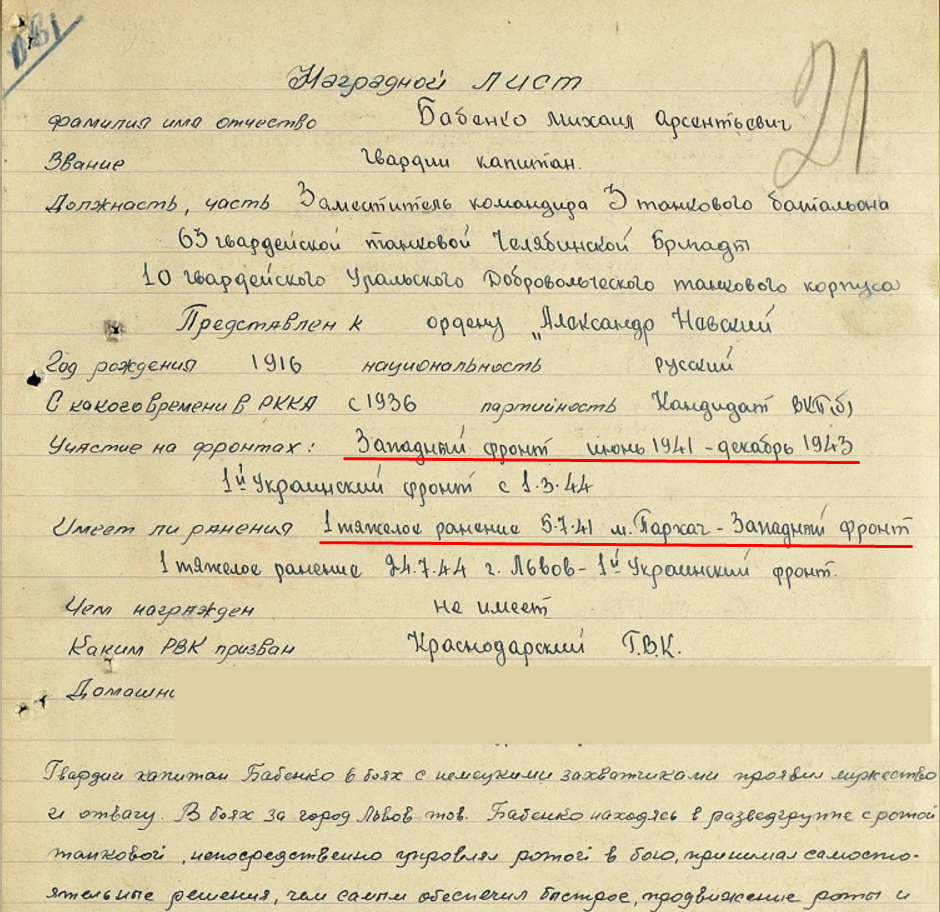 21
Наградной лист
фамилия имя отчество Бабенко Михаил Арсентьевич
Звание Гвардии капитан.
Должность, часть Заместитель командира 3 танкового батальона
63 гвардейской танковой Челябинской Бригады
10 гвардейского Уральского Добровольческого танкового корпуса
Представлен к ордену „Александр Невский
Год рождения 1916 национальность русский
С какого времени в РККА с 1936 партийность Кандидат ВКП(б)
Участие на фронтах: Западный фронт июнь 1941 – декабрь 1943
1й Украинский фронт с 1.3.44
Имеет ли ранения 1 тяжелое ранение 5.7.41 м. Пархач – Западный фронт
1 тяжелое ранение 24.7.44 г. Львов – 1й Украинский фронт.
Чем награжден не имеет
Каким РВК призван Краснодарский Г.В.К.
Домашн
Гвардии капитан Бабенко в боях с немецкими захватчиками проявил мужество
и отвагу. В боях за город Львов тов. Бабенко находясь в разведгруппе с ротой
танковой, непосредственно управлял ротой в бою, принимал самосто-
ятельные решения, чем самым обеспечил быстрое, продвижение роты и